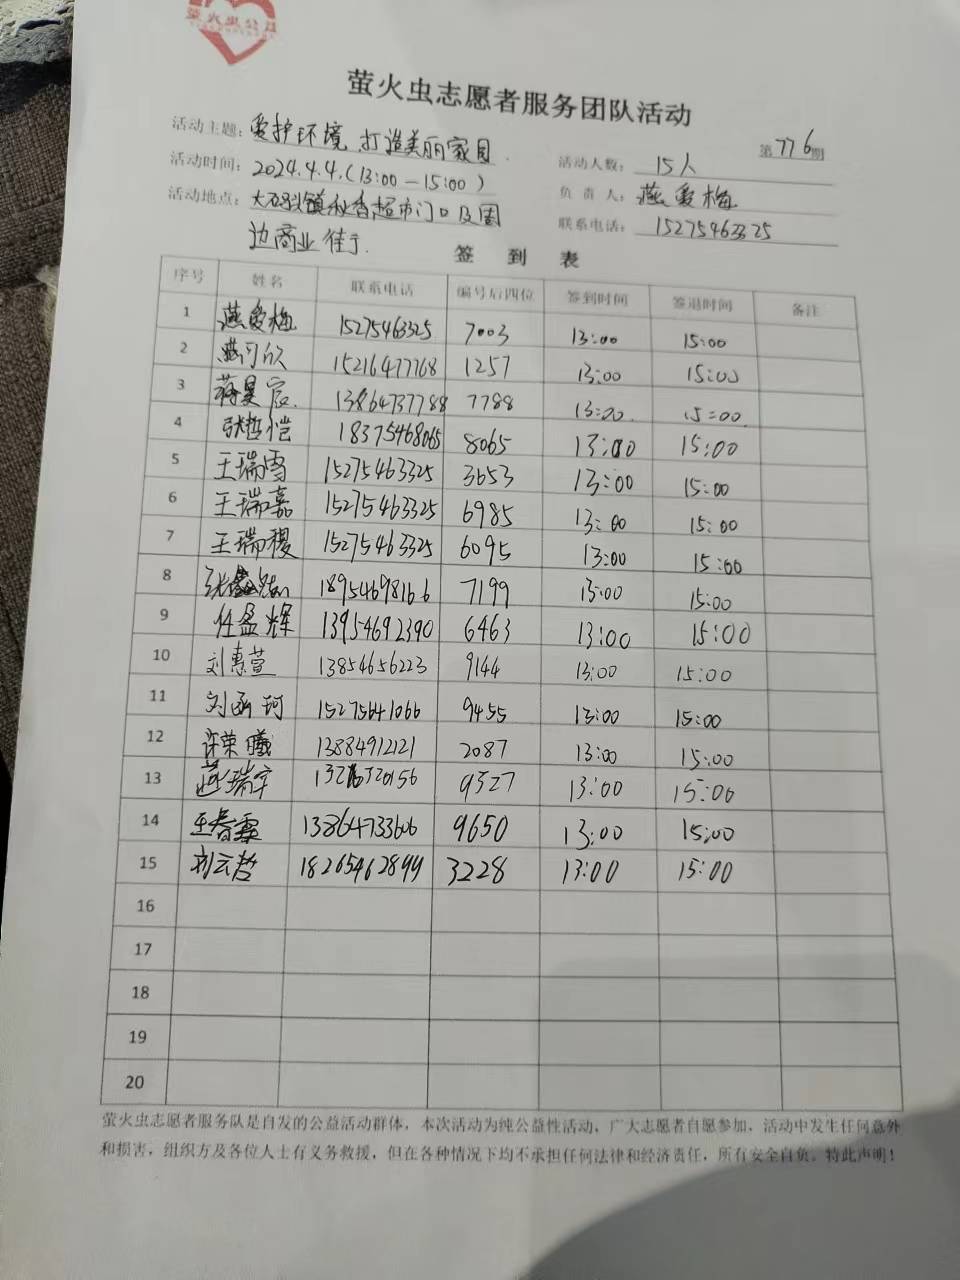 萤火虫公益
萤火虫志愿者服务团队活动
第776期
活动主题：爱护环境 打造美丽家园
活动人数：15人
活动时间：2024.4.4.(13:00-15:00)
负责人：燕爱梅
活动地点：大码头镇秋香超市门口及周
边商业街
联系电话：15275463325
签到表
序号 姓名 联系电话 编号后四位 签到时间 签退时间 备注
1 燕爱梅 15275463325 7003 13:00 15:00
2 燕可欣 15216477768 1257 13:00 15:00
3 蒋昊宸 13864737788 7788 13:00 15:00
4 张哲恺 18375468065 8065 13:00 15:00
5 王瑞雪 15275463325 3653 13:00 15:00
6 王瑞嘉 15275463325 6985 13:00 15:00
7 王瑞稷 15275463325 6095 13:00 15:00
8 张鑫 18954698166 7199 13:00 15:00
9 任盈辉 13954692390 6463 13:00 15:00
10 刘惠萱 13854656223 9144 13:00 15:00
11 刘函珂 15275641066 9455 13:00 15:00
12 许荣曦 13884912121 2087 13:00 15:00
13 燕瑞宇 9327 13:00 15:00
14 王春霞 13864733606 9650 13:00 15:00
15 刘云哲 18265462899 3228 13:00 15:00
16
17
18
19
20
萤火虫志愿者服务队是自发的公益活动群体，本次活动为纯公益性活动，广大志愿者自愿参加，活动中发生任何意外
和损害，组织方及各位人士有义务救援，但在各种情况下均不承担任何法律和经济责任，所有安全自负。特此声明！